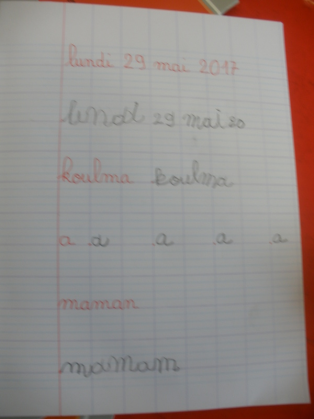 lundi 29 mai 2017
lundi 29 mai 20
koulma koulma
a a a a a
maman
mamam